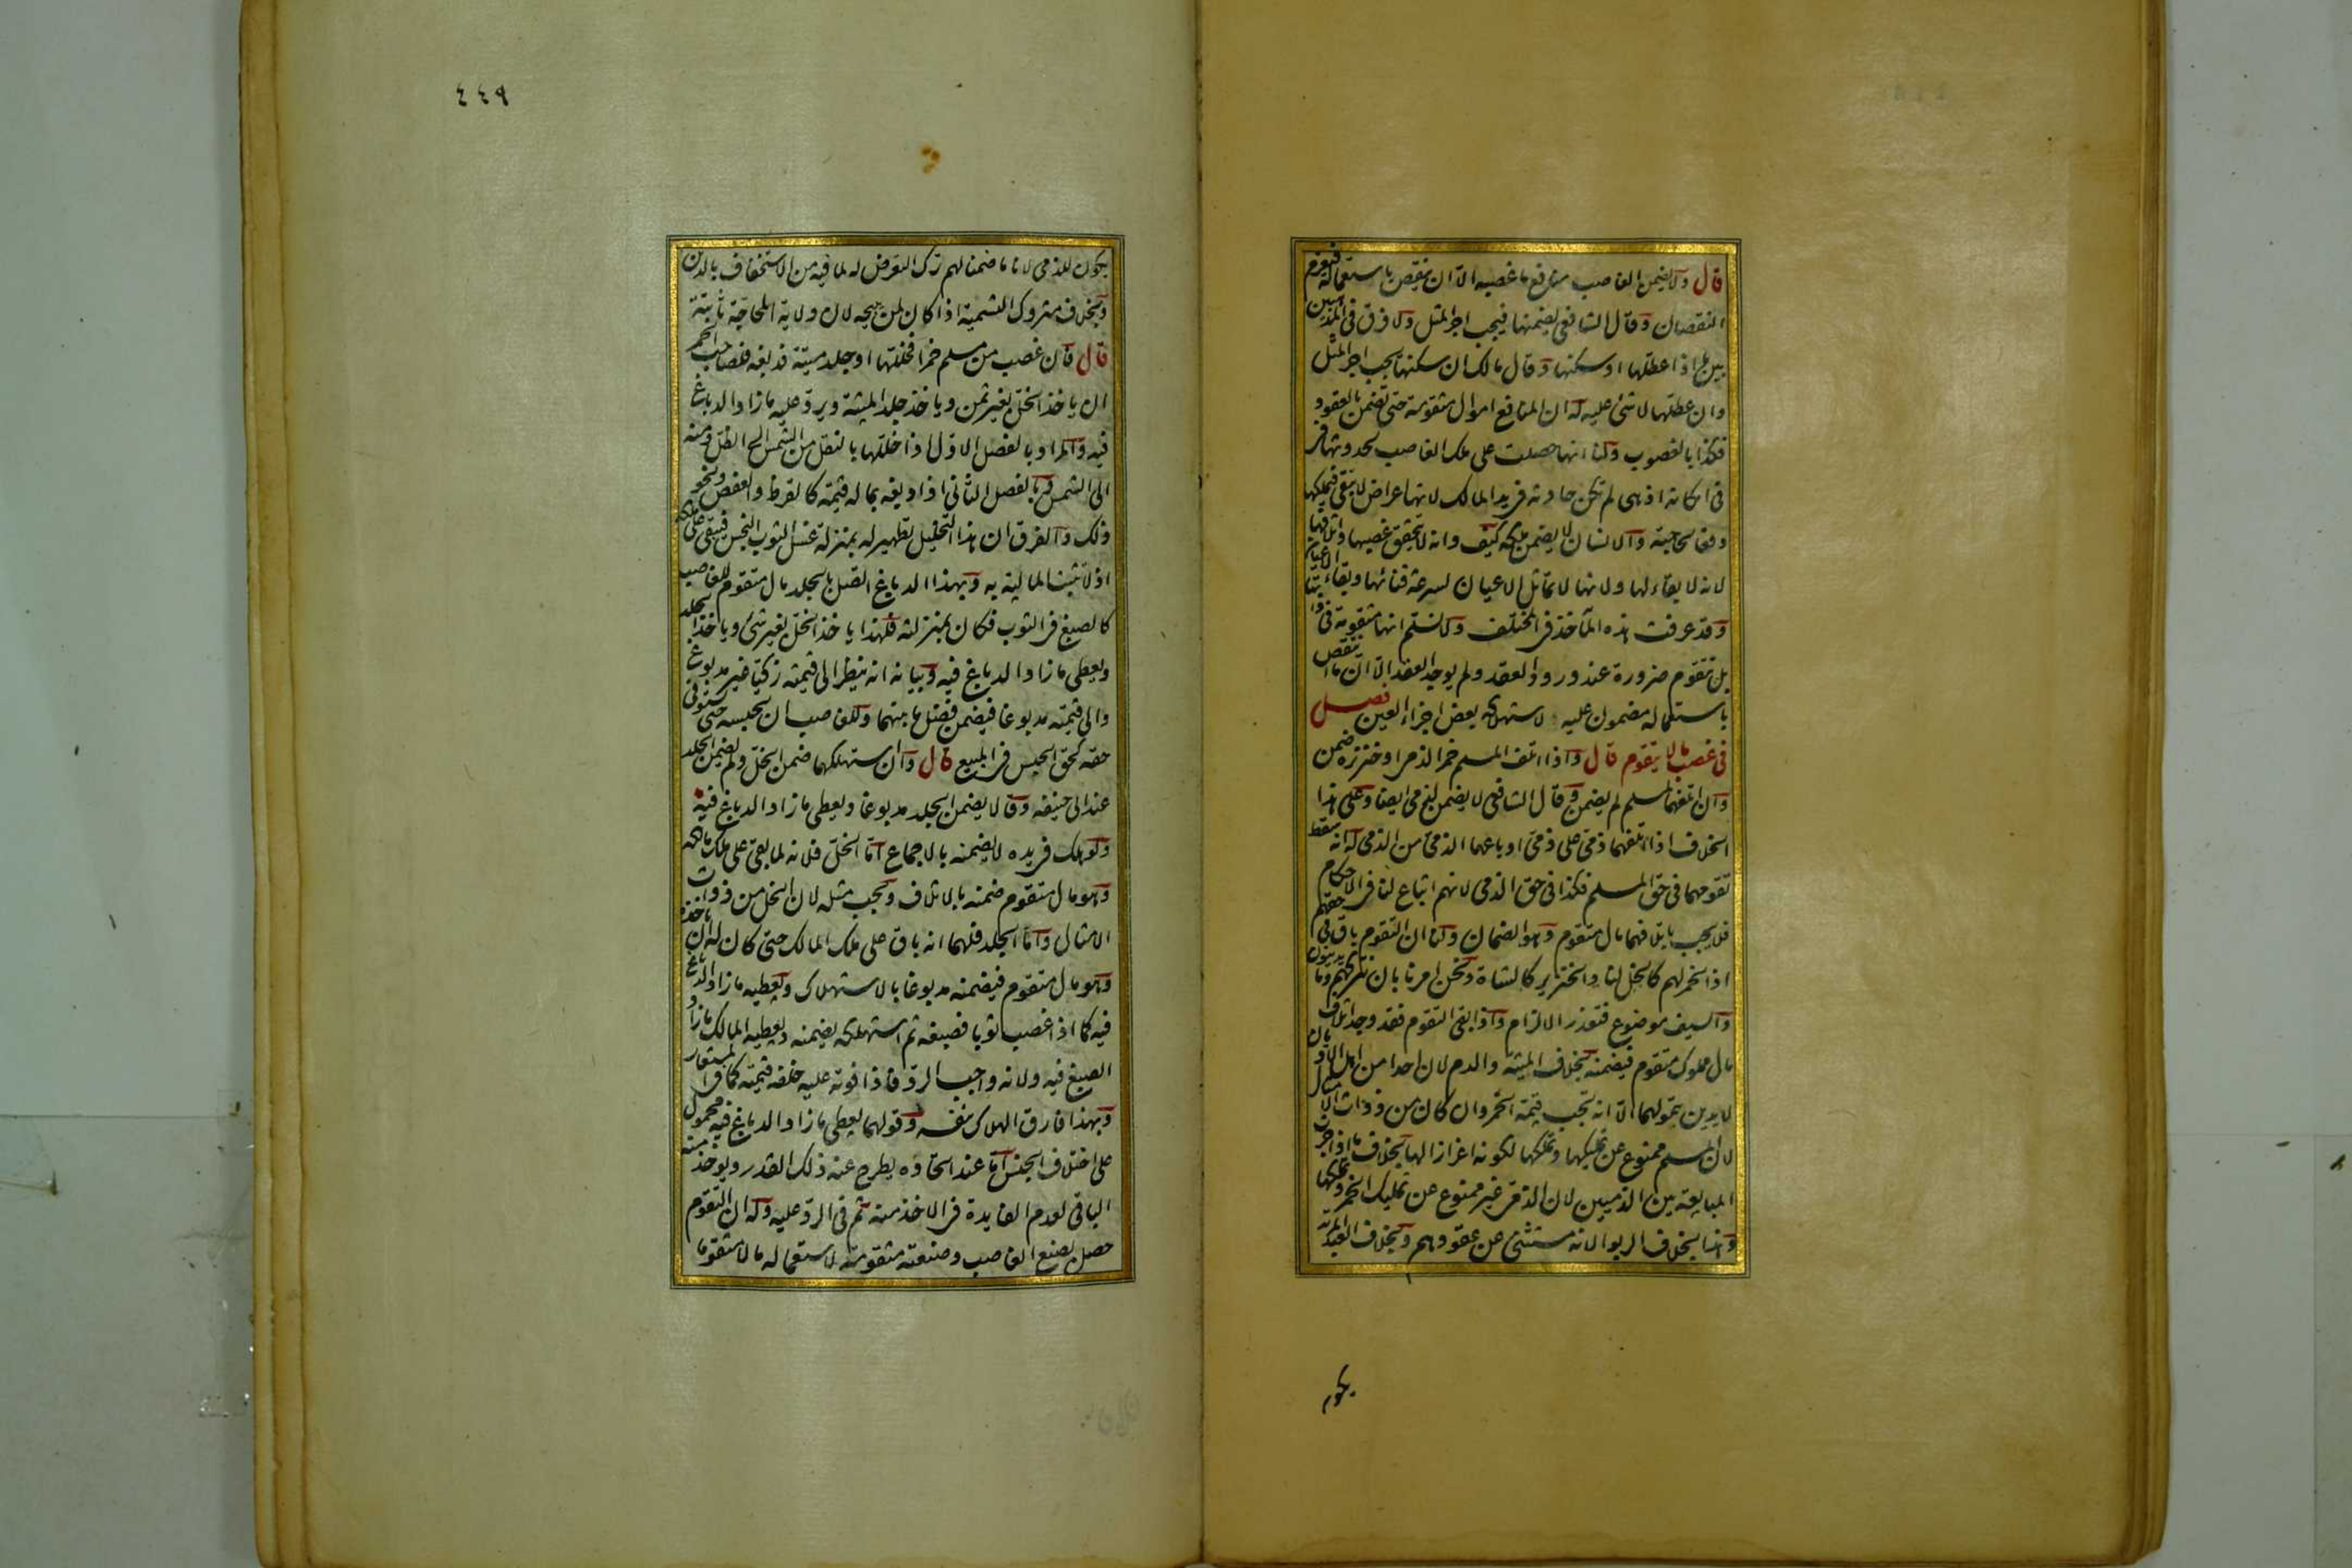 قال ولا يضمن الغاصب منافع ما غصبه الا ان ينقص باستعماله فيغرم
النقصان وقال الشافعي يضمنها فيجب اجر المثل ولا فرق في المذهبين
بين ما اذا عطلها او سكنها وقال مالك ان سكنها يجب اجر المثل
وان عطلها لا شئ عليه له ان المنافع اموال متقومة حتى تضمن بالعقود
فكذا بالغصوب ولنا انها حصلت على ملك الغاصب لحدوثها في
في امكانه اذ هي لم تكن حادثة في يد المالك لانها اعراض لا تبقى فيملكها
دفعا لحاجته والانسان لا يضمن ملكه كيف وانه لا يتحقق غصبها واتلافها
لانه لا بقاء لها ولانها لا تماثل الاعيان لسرعة فنائها وبقاء الاعيان
وقد عرفت هذه المآخذ في المختلف ولا نسلم انها متقومة في ذاتها
بل تتقوم ضرورة عند ورود العقد ولم يوجد العقد الا ان ما انتقص
باستعماله مضمون عليه لاستهلاكه بعض اجزاء العين فصل
في غصب ما لا يتقوم قال واذا اتلف المسلم خمر الذمي او خنزيره ضمن
وان اتلفهما لمسلم لم يضمن وقال الشافعي لا يضمن للذمي ايضا وعلى هذا
الخلاف اذا اتلفهما ذمي على ذمي او باعهما الذمي من الذمي له انه سقط
تقومهما في حق المسلم فكذا في حق الذمي لانهم اتباع لنا في الاحكام
فلا يجب باتلافهما مال متقوم وهو الضمان ولنا ان التقوم باق في حقهم
اذ الخمر لهم كالخل لنا والخنزير كالشاة ونحن امرنا بان نتركهم وما يدينون
والسيف موضوع فتعذر الالزام واذا بقي التقوم فقد وجد اتلاف
مال مملوك متقوم فيضمنه بخلاف الميتة والدم لان احدا من اهل الاديان
لا يدين تمولهما الا انه تجب قيمة الخمر وان كان من ذوات الامثال
لان المسلم ممنوع عن تمليكها وتملكها لكونه اعزازا لها بخلاف ما اذا جرت
المبايعة بين الذميين لان الذمي غير ممنوع عن تمليك الخمر وتملكها
وهذا بخلاف الربوا لانه مستثنى عن عقودهم وبخلاف العبد المرتد
يكون
٤٤٩
يكون للذمي لانا ما ضمنا لهم ترك التعرض له لما فيه من الاستخفاف بالدين
وبخلاف متروك التسمية اذا كان لمن يبيحه لان ولاية المحاجة ثابتة
قال فان غصب من مسلم خمرا فخللها او جلد ميتة فدبغه فلصاحب الخمر
ان ياخذ الخل بغير ثمن وياخذ جلد الميتة ويرد عليه ما زاد الدباغ
فيه والمراد بالفصل الاول اذا خللها بالنقل من الشمس الى الظل ومنه
الى الشمس وبالفصل الثاني اذا دبغه بما له قيمة كالقرظ والعفص ونحو
ذلك والفرق ان هذا التخليل تطهير له بمنزلة غسل الثوب النجس فيبقى على ملكه
اذ لا تثبت المالية به وبهذا الدباغ اتصل بالجلد مال متقوم للغاصب
كالصبغ في الثوب فكان بمنزلته فلهذا ياخذ الخل بغير شئ وياخذ الجلد
ويعطي ما زاد الدباغ فيه وبيانه انه ينظر الى قيمته زكيا غير مدبوغ
والى قيمته مدبوغا فيضمن فضل ما بينهما وللغاصب ان يحبسه حتى يستوفي
حقه كحق الحبس في المبيع قال وان استهلكهما ضمن الخل ولم يضمن الجلد
عند ابي حنيفة وقالا يضمن الجلد مدبوغا ويعطي ما زاد الدباغ فيه
ولو هلك في يده لا يضمنه بالاجماع اما الخل فلانه لما بقي على ملك مالكه
وهو مال متقوم ضمنه بالاتلاف ويجب مثله لان الخل من ذوات
الامثال واما الجلد فلهما انه باق على ملك المالك حتى كان له ان ياخذه
وهو مال متقوم فيضمنه مدبوغا بالاستهلاك ويعطيه ما زاد الدباغ
فيه كما اذا غصب ثوبا فصبغه ثم استهلكه يضمنه ويعطيه المالك ما زاد
الصبغ فيه ولانه واجب الرد فاذا فوته عليه خلفه قيمته كما في المستعار
وبهذا فارق الهلاك بنفسه وقولهما يعطي ما زاد الدباغ فيه محمول
على اختلاف الجنس اما عند اتحاده يطرح عنه ذلك القدر ويوخذ منه
الباقي لعدم الفايدة في الاخذ منه ثم في الرد عليه وله ان التقوم
حصل بصنع الغاصب وصنعته متقومة لاستعماله مالا متقوما